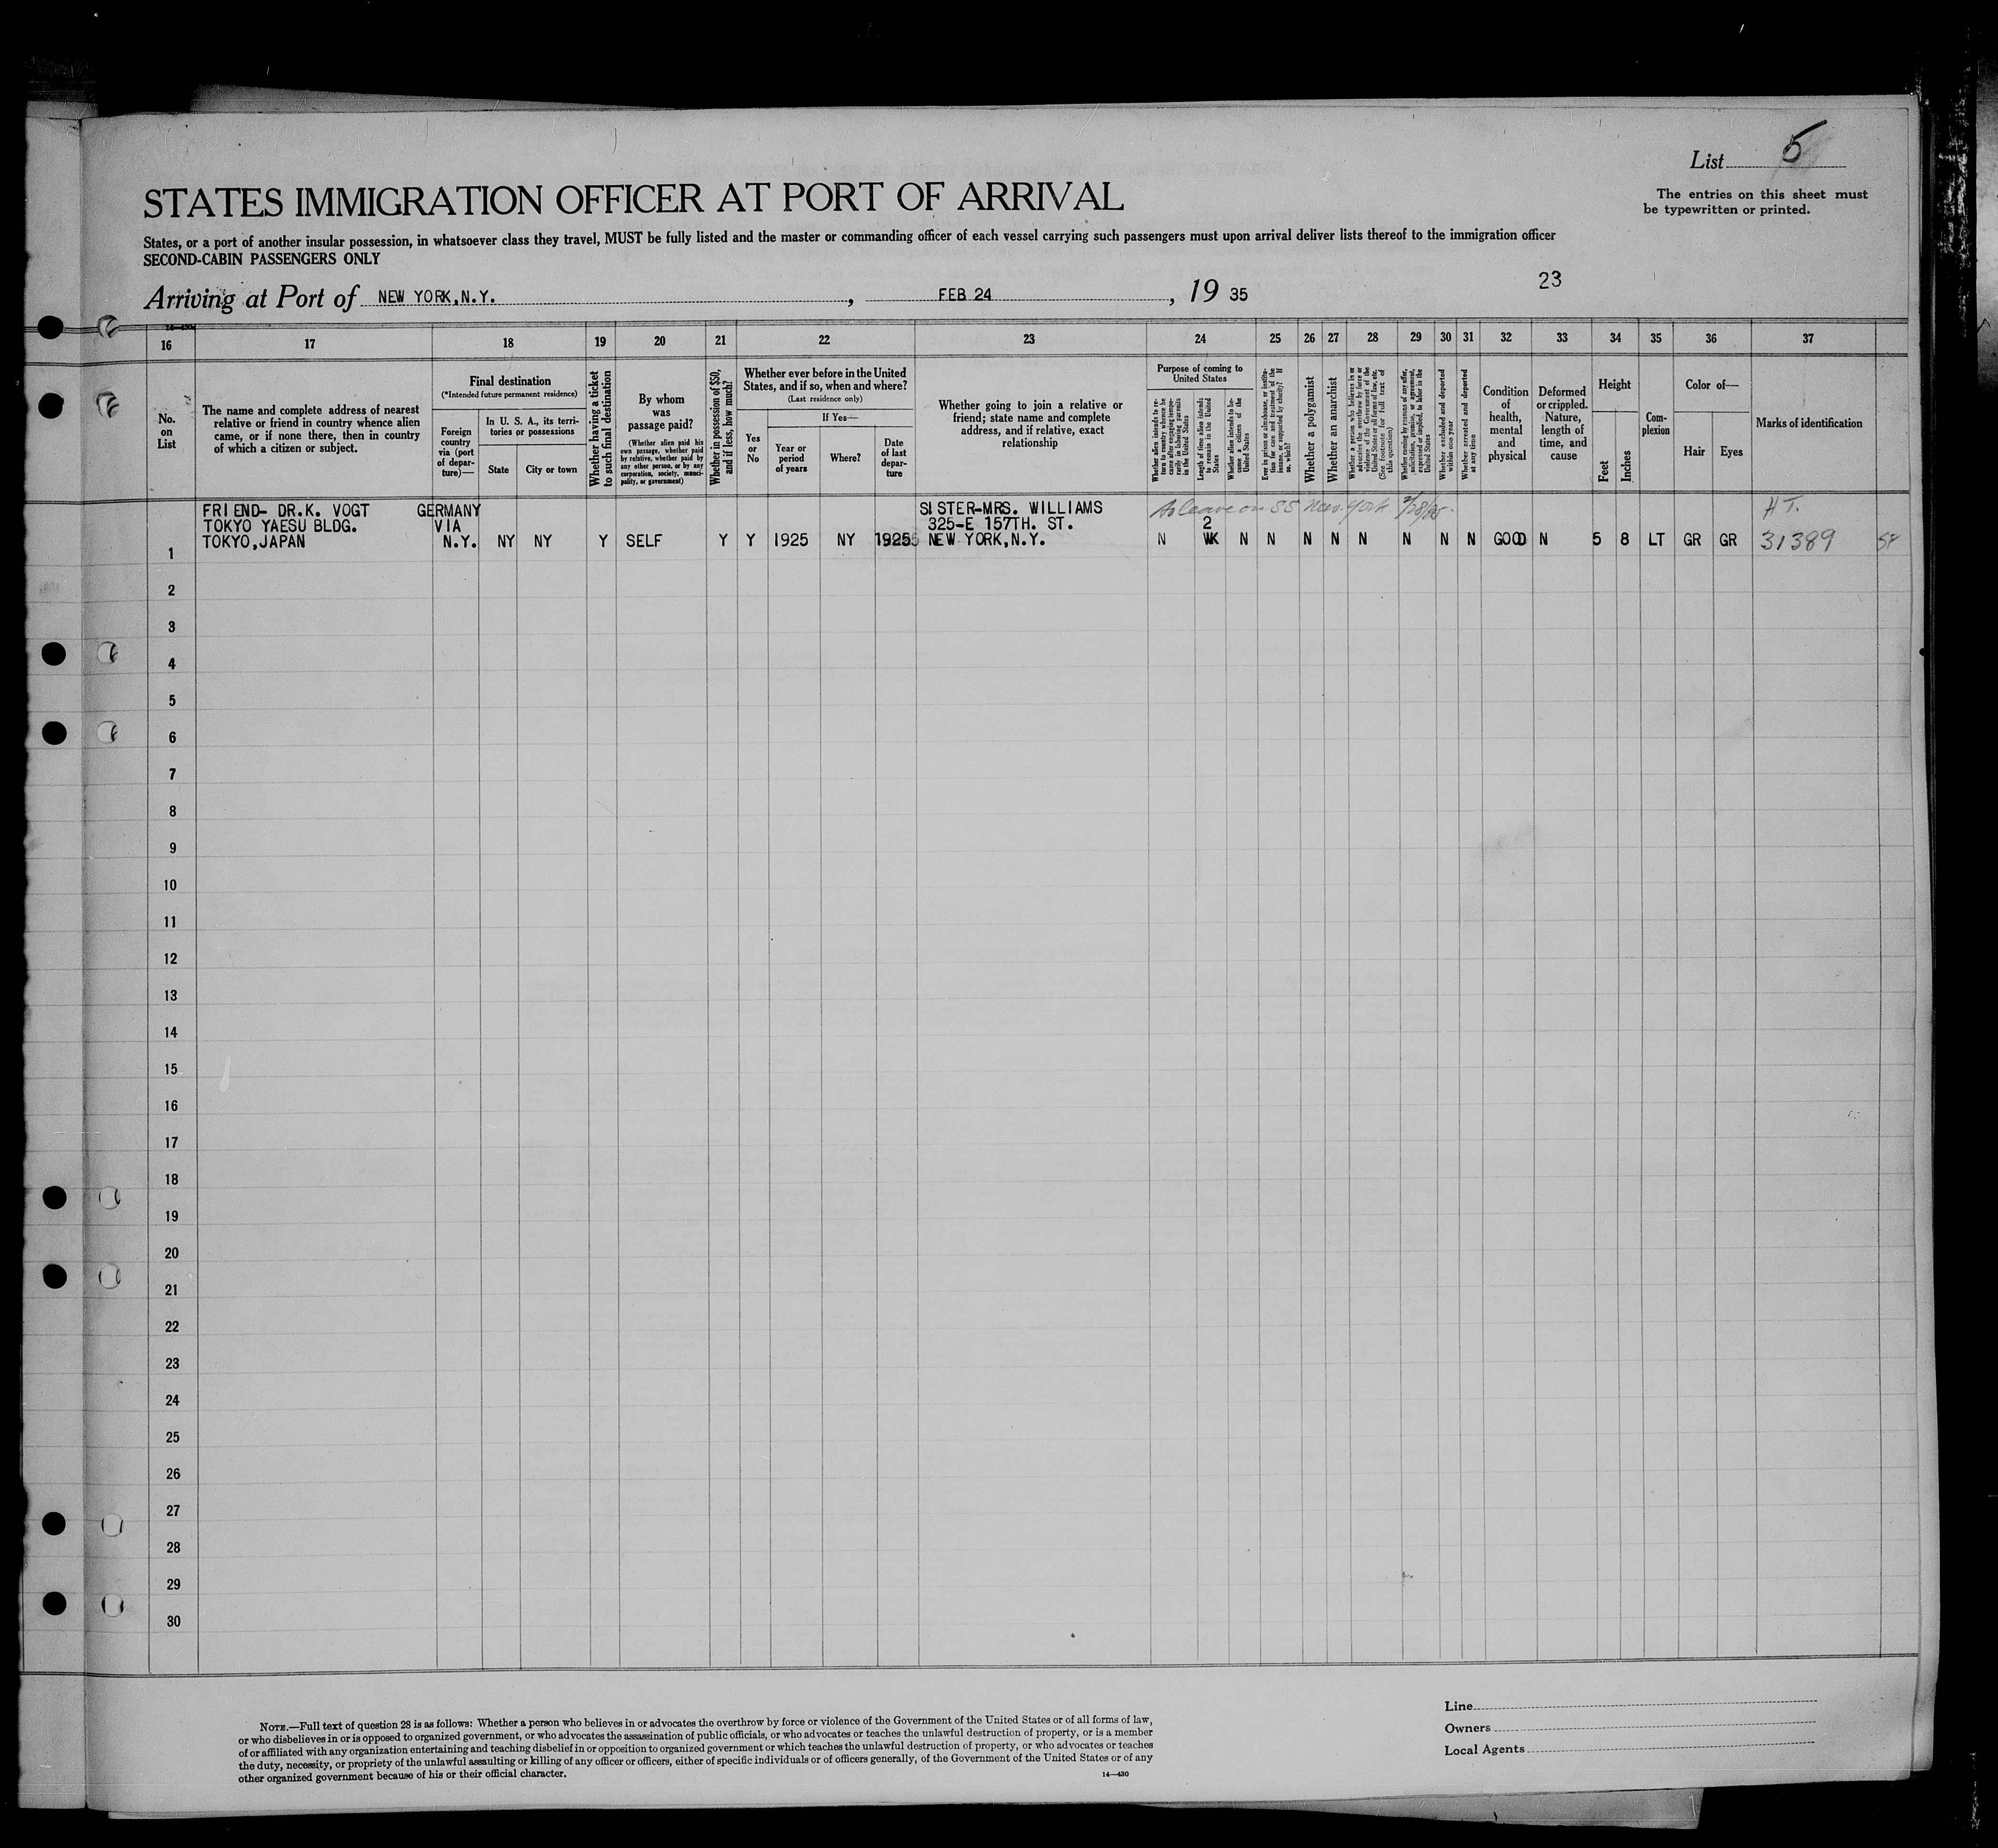 List 5
The entries on this sheet must
be typewritten or printed.
STATES IMMIGRATION OFFICER AT PORT OF ARRIVAL
States, or a port of another insular possession, in whatsoever class they travel, MUST be fully listed and the master or commanding officer of each vessel carrying such passengers must upon arrival deliver lists thereof to the immigration officer
SECOND-CABIN PASSENGERS ONLY
23
Arriving at Port of NEW YORK,N.Y. , FEB 24 , 19 35
14—430
16 17 18 19 20 21 22 23 24 25 26 27 28 29 30 31 32 33 34 35 36 37
No.
on
List
The name and complete address of nearest
relative or friend in country whence alien
came, or if none there, then in country
of which a citizen or subject.
Final destination
(*Intended future permanent residence)
Foreign
country
via (port
of depar-
ture)—
In U. S. A., its terri-
tories or possessions
State
City or town
Whether having a ticket
to such final destination
By whom
was
passage paid?
(Whether alien paid his
own passage, whether paid
by relative, whether paid by
any other person, or by any
corporation, society, munici-
pality, or government)
Whether in possession of $50,
and if less, how much?
Whether ever before in the United
States, and if so, when and where?
(Last residence only)
Yes
or
No
If Yes—
Year or
period
of years
Where?
Date
of last
depar-
ture
Whether going to join a relative or
friend; state name and complete
address, and if relative, exact
relationship
Purpose of coming to
United States
Whether alien intends to re-
turn to country whence he
came after engaging tempo-
rarily in laboring pursuits
in the United States
Length of time alien intends
to remain in the United
States
Whether alien intends to be-
come a citizen of the
United States
Ever in prison or almshouse, or institu-
tion for care and treatment of the
insane, or supported by charity? If
so, which?
Whether a polygamist
Whether an anarchist
Whether a person who believes in or
advocates the overthrow by force or
violence of the Government of the
United States or all forms of law, etc.
(See footnote for full text of
this question)
Whether coming by reasons of any offer,
solicitation, promise, or agreement,
expressed or implied, to labor in the
United States
Whether excluded and deported
within one year
Whether arrested and deported
at any time
Condition
of
health,
mental
and
physical
Deformed
or crippled.
Nature,
length of
time, and
cause
Height
Feet
Inches
Com-
plexion
Color of—
Hair
Eyes
Marks of identification
FRIEND- DR.K. VOGT GERMANY SISTER-MRS. WILLIAMS to leave on SS New York 2/28/35 HT.
TOKYO YAESU BLDG. VIA 325-E 157TH. ST. 2
TOKYO,JAPAN N.Y. NY NY Y SELF Y Y 1925 NY 1925 NEW YORK,N.Y. N WK N N N N N N N N GOOD N 5 8 LT GR GR 31389
1
2
3
4
5
6
7
8
9
10
11
12
13
14
15
16
17
18
19
20
21
22
23
24
25
26
27
28
29
30
NOTE.—Full text of question 28 is as follows: Whether a person who believes in or advocates the overthrow by force or violence of the Government of the United States or of all forms of law,
or who disbelieves in or is opposed to organized government, or who advocates the assassination of public officials, or who advocates or teaches the unlawful destruction of property, or is a member
of or affiliated with any organization entertaining and teaching disbelief in or opposition to organized government or which teaches the unlawful destruction of property, or who advocates or teaches
the duty, necessity, or propriety of the unlawful assaulting or killing of any officer or officers, either of specific individuals or of officers generally, of the Government of the United States or of any
other organized government because of his or their official character.
14—430
Line
Owners
Local Agents